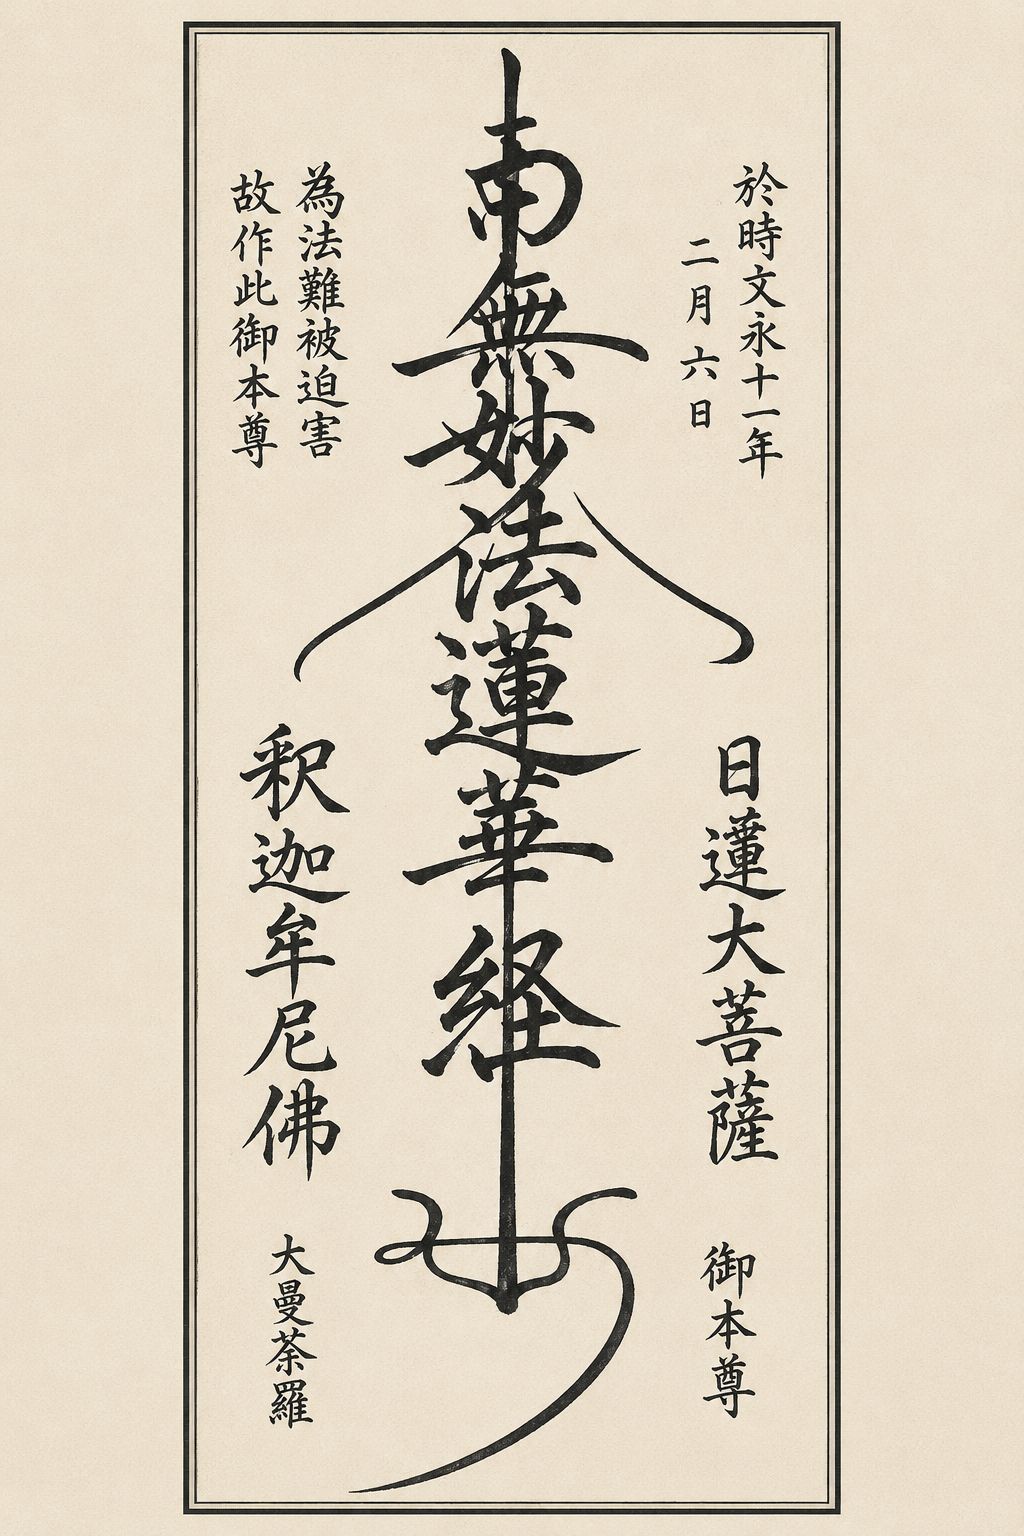 於時文永十一年
二月六日
南無妙法蓮華経
為法難被迫害
故作此御本尊
日蓮大菩薩
釈迦牟尼佛
御本尊
大曼荼羅